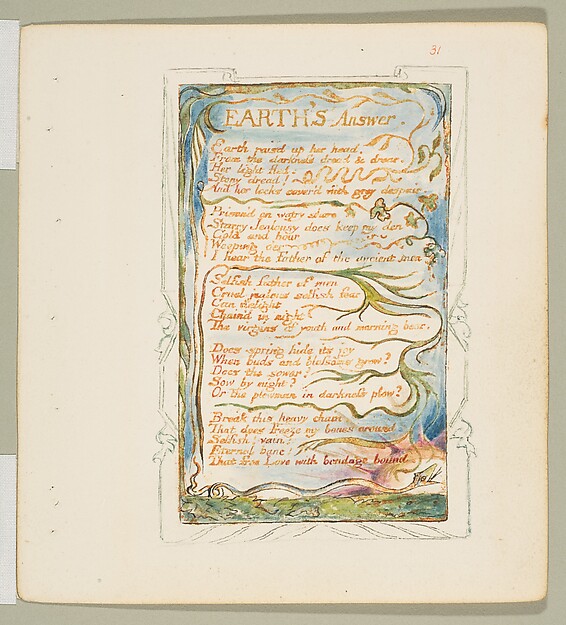 31
EARTH'S Answer.
Earth rais'd up her head,
From the darkness dread & drear.
Her light fled:
Stony dread!
And her locks cover'd with grey despair.
Prison'd on watry shore
Starry Jealousy does keep my den
Cold and hoar
Weeping o'er
I hear the father of the ancient men
Selfish father of men
Cruel jealous selfish fear
Can delight
Chain'd in night
The virgins of youth and morning bear.
Does spring hide its joy
When buds and blossoms grow?
Does the sower?
Sow by night?
Or the plowman in darkness plow?
Break this heavy chain
That does freeze my bones around
Selfish! vain!
Eternal bane!
That free Love with bondage bound